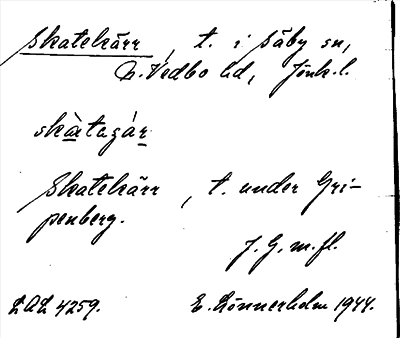 Skatekärr, t. i Säby sn,
N. Vedbo hd, Jönk. l.
skàtagár
Skatekärr, t. under Gri-
penberg.
J. G. m. fl.
LAL 4259. E. Lönnerholm 1944.